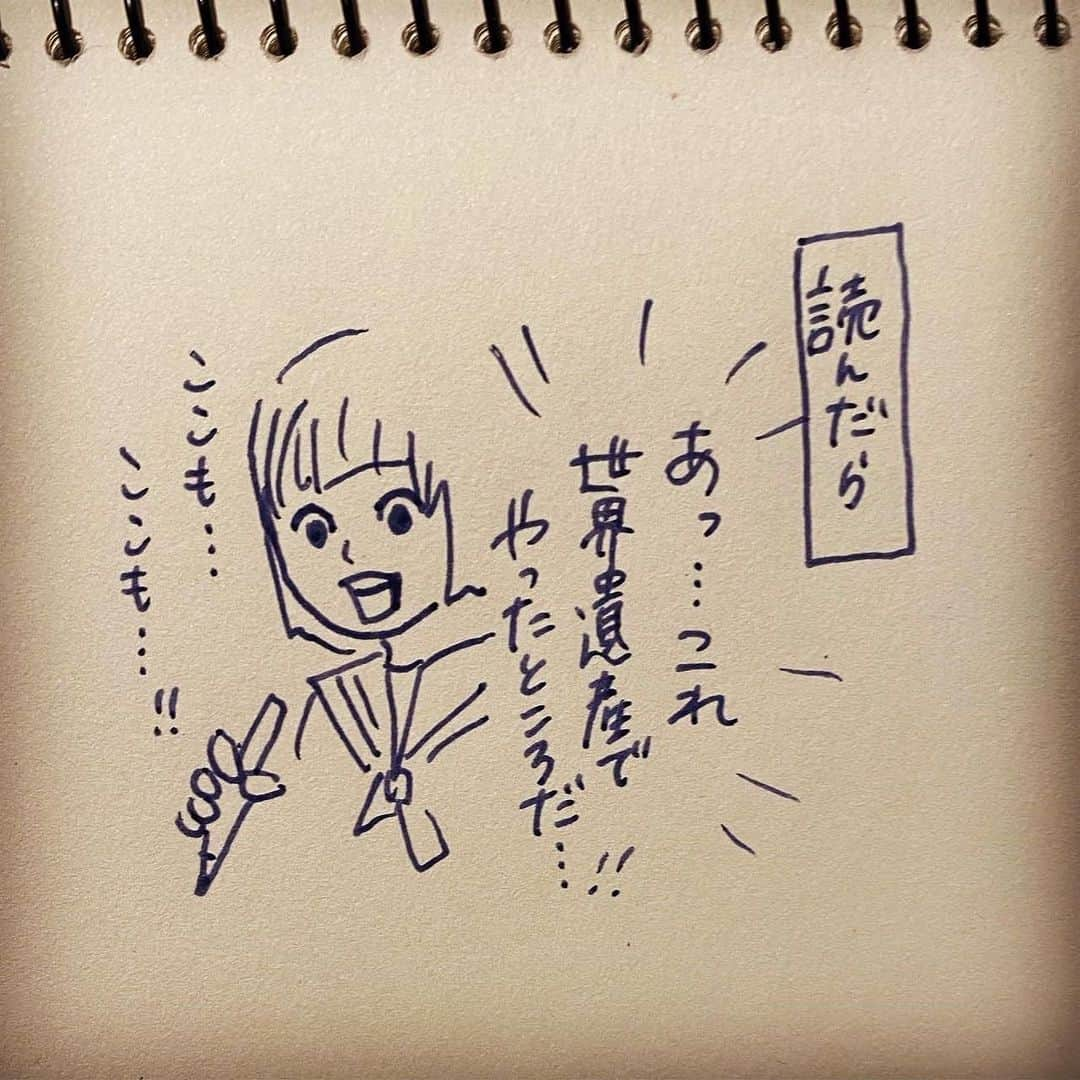 読んだら
あっ…これ
世界遺産で
やったところだ…!!
ここも…
ここも…!!